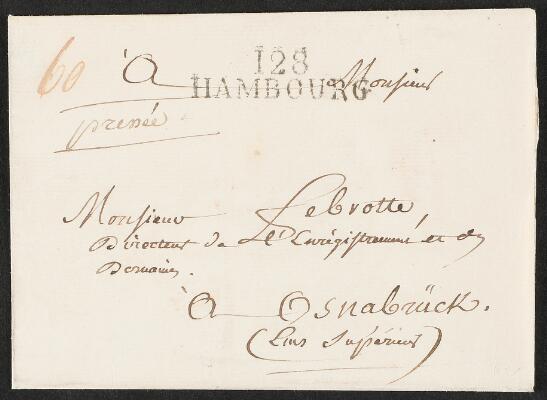 60
128
HAMBOURG
à Monsieur
pressée
Monsieur Lebrotte,
Directeur de L'Enrégistrement et des
Domaines.
à Osnabrück.
(Ems Supérieur)